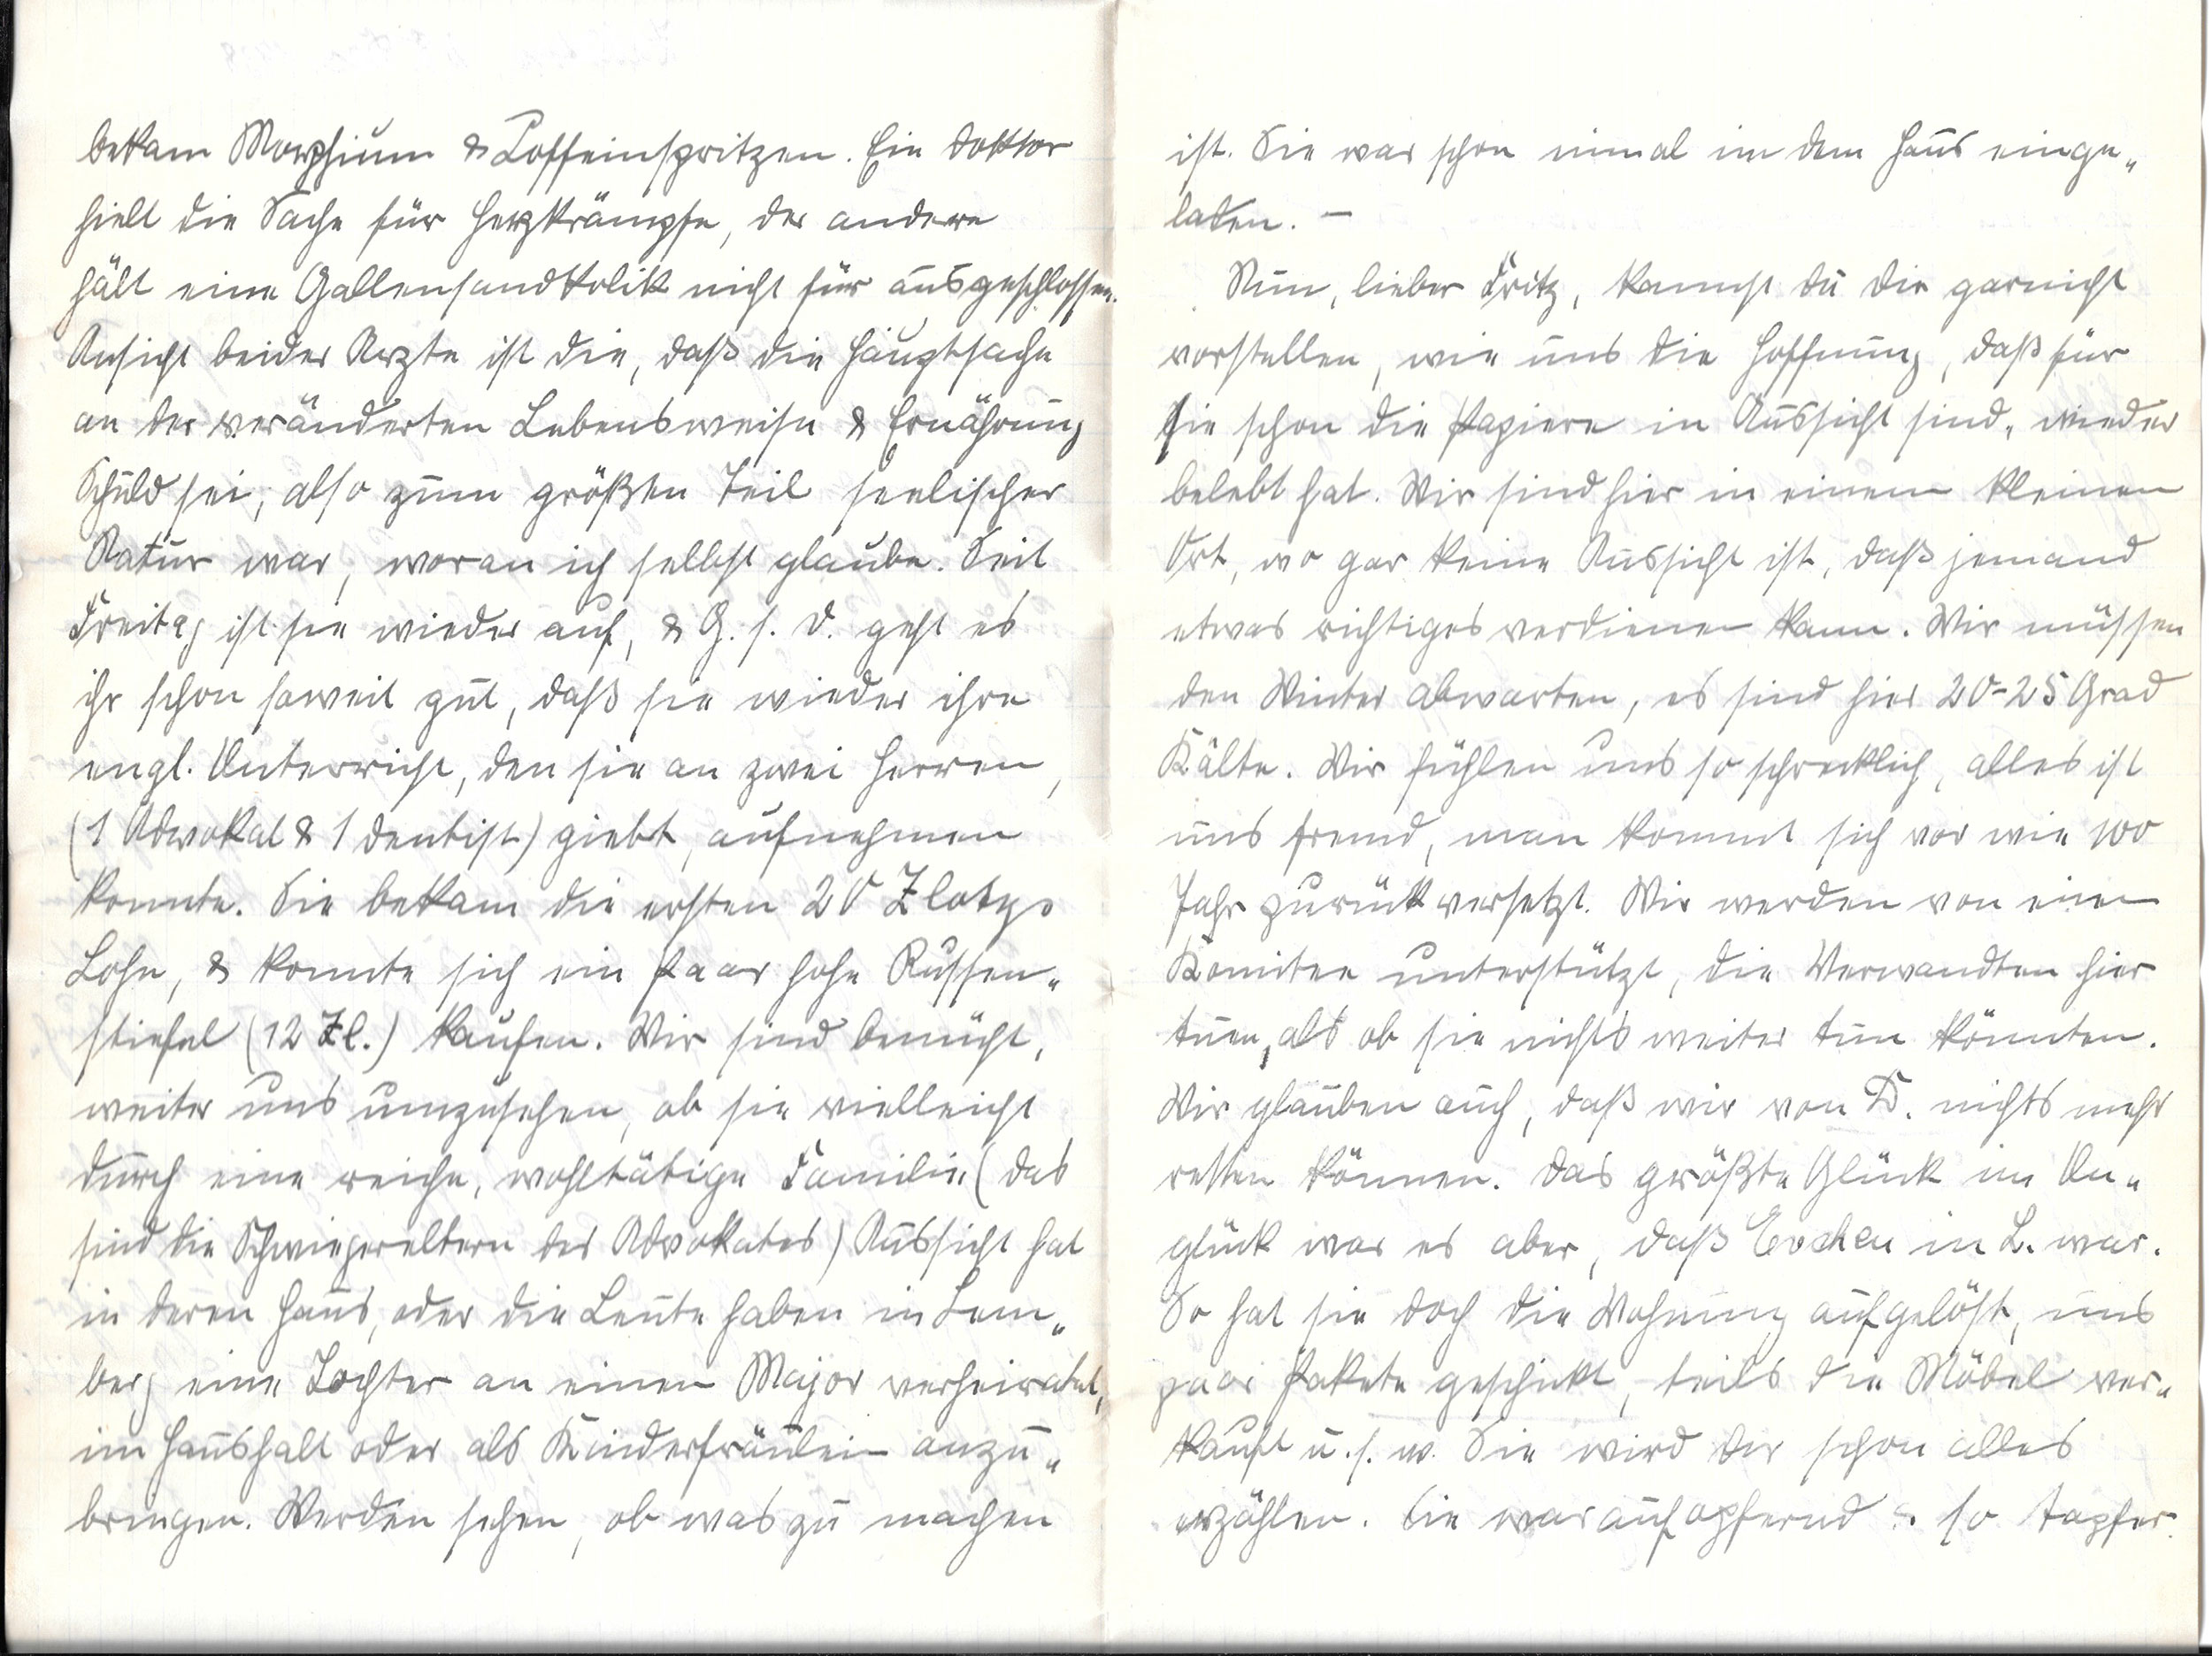 bekam Morphium & Koffeinspritzen. Ein Doktor
hielt die Sache für Herzkrämpfe, der andere
hält eine Gallensandkolik nicht für ausgeschlossen.
Ansicht beider Ärzte ist die, daß die Hauptsache
an der veränderten Lebensweise & Ernährung
Schuld sei, also zum größten Teil seelischer
Natur war, woran ich selbst glaube. Seit
Freitag ist sie wieder auf, & G. s. D. geht es
ihr schon soweit gut, daß sie wieder ihre
engl. Unterricht, den sie an zwei Herren,
(1 Advokat & 1 Dentist) giebt, aufnehmen
konnte. Sie bekam die ersten 20 Zlotys
Lohn, & konnte sich ein Paar hohe Russen„
stiefel (12 Zl.) kaufen. Wir sind bemüht,
weiter uns umzusehen, ob sie vielleicht
durch eine reiche, wohltätige Familie (das
sind die Schwiegereltern des Advokates) Aussicht hat
in deren Haus, oder die Leute haben in Lem„
berg eine Tochter an einen Major verheiratet,
im Haushalt oder als Kinderfräulein anzu„
bringen. Werden sehen, ob was zu machen
ist. Sie war schon einmal in dem Haus einge„
laden. –
Nun, lieber Fritz, kannst du dir garnicht
vorstellen, wie uns die Hoffnung, daß für
sie schon die Papiere in Aussicht sind, wieder
belebt hat. Wir sind hier in einem kleinen
Ort, wo gar keine Aussicht ist, daß jemand
etwas richtiges verdienen kann. Wir müssen
den Winter abwarten, es sind hier 20-25 Grad
Kälte. Wir fühlen uns so schrecklich, alles ist
uns fremd, man kommt sich vor wie 100
Jahr zurückversetzt. Wir werden von einem
Komitee unterstützt, die Verwandten hier
tuen, als ob sie nichts weiter tun könnten.
Wir glauben auch, daß wir von D. nichts mehr
retten können. Das größte Glück im Un„
glück war es aber, daß Evchen in L. war.
So hat sie doch die Wohnung aufgelöst, uns
paar Pakete geschickt, teils die Möbel ver„
kauft u. s. w. Sie wird dir schon alles
erzählen. Sie war aufopfernd & so tapfer.